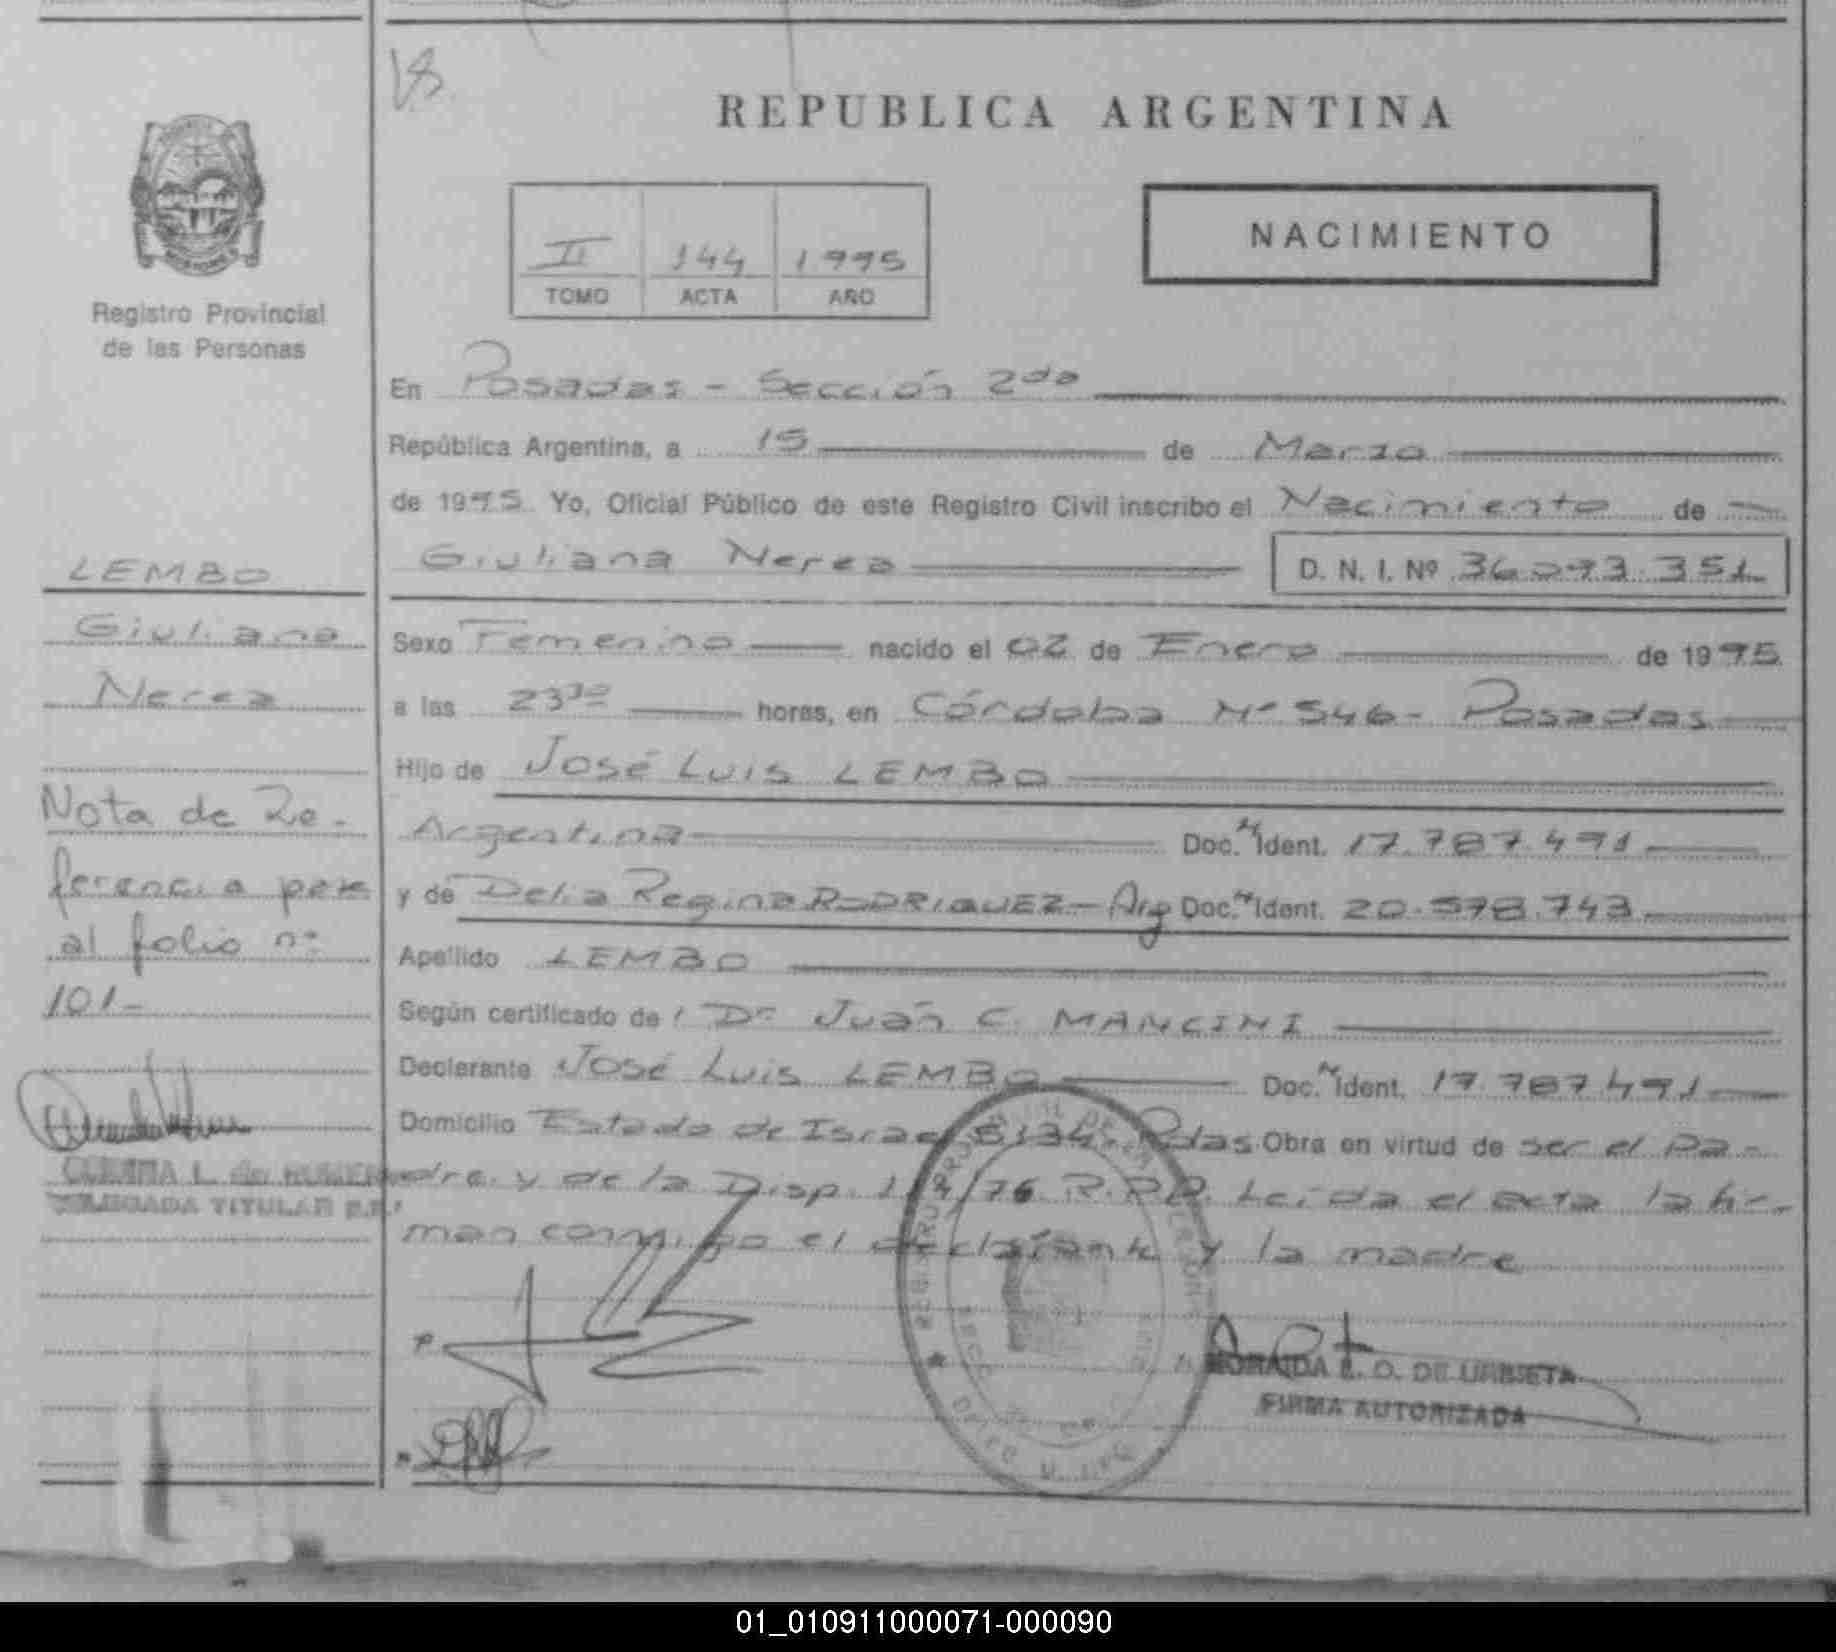 18
REPUBLICA ARGENTINA
II 144 1995
TOMO ACTA AÑO
NACIMIENTO
Registro Provincial
de las Personas
En Posadas - Sección 2da
República Argentina, a 15 de Marzo
de 1995. Yo, Oficial Público de este Registro Civil inscribo el Nacimiento de
Giuliana Nerea D. N. I. Nº 36.093.351
Sexo Femenino nacido el 02 de Enero de 1995
a las 23 30 horas, en Córdoba Nº 546 - Posadas
Hijo de José Luis LEMBO
Argentina Doc. N Ident. 17.787.491
y de Delia Regina RODRIGUEZ - Arg Doc. N Ident. 20.578.743
Apellido LEMBO
Según certificado de: Dr Juan C. MANCINI
Declarante José Luis LEMBO Doc. N Ident. 17.787.491
Domicilio Estado de Israel Pdas. Obra en virtud de ser el Pa-
dre y de la Disp. R.P.P. Leída el acta la fir-
man conmigo el declarante y la madre
LEMBO
Giuliana
Nerea
Nota de Re-
ferencia pase
al folio nº
101-
DELEGADA TITULAR
DE URBIETA
FIRMA AUTORIZADA
01_010911000071-000090